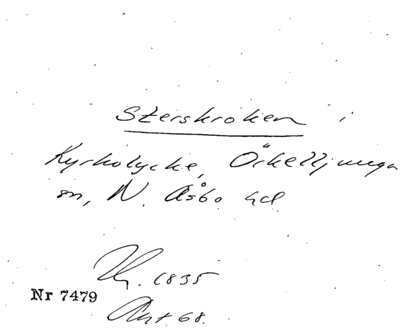 Szerskroken i
Kyrkolycke, Örkelljunga
sn, N. Åsbo hd.
1835
Nr 7479
Akt 68.